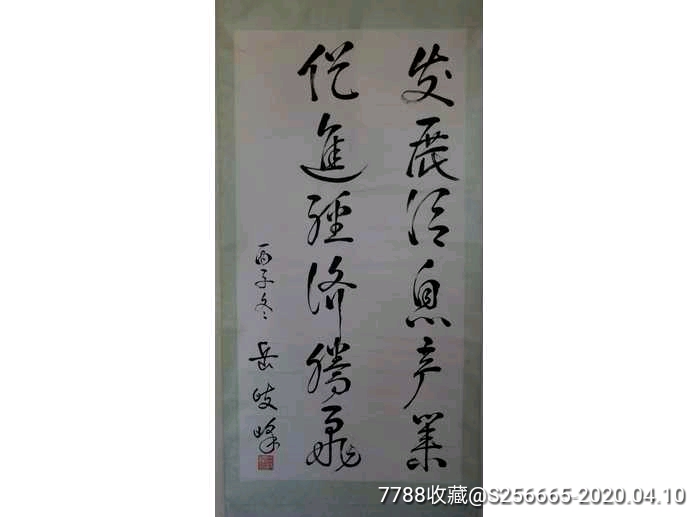 发展信息产业
促進經济腾飛
丙子冬 岳岐峰
7788收藏@S256665-2020.04.10